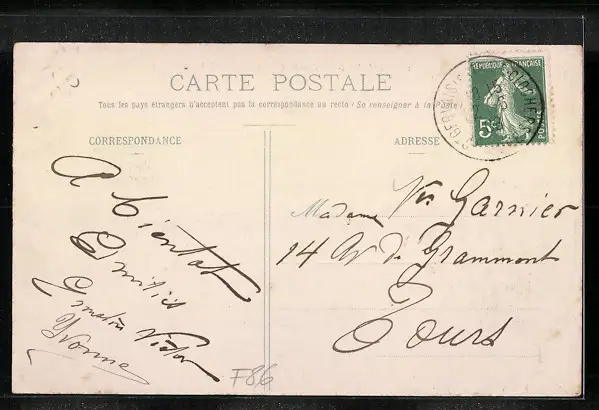 CARTE POSTALE
Tous les pays étrangers n'acceptent pas la correspondance au recto (Se renseigner à la Poste)
CORRESPONDANCE
ADRESSE
RÉPUBLIQUE FRANÇAISE
5c
POSTES
A bientôt
Amitiés
Yvonne
Madame Vve Garnier
14 Av de Grammont
Tours
F86